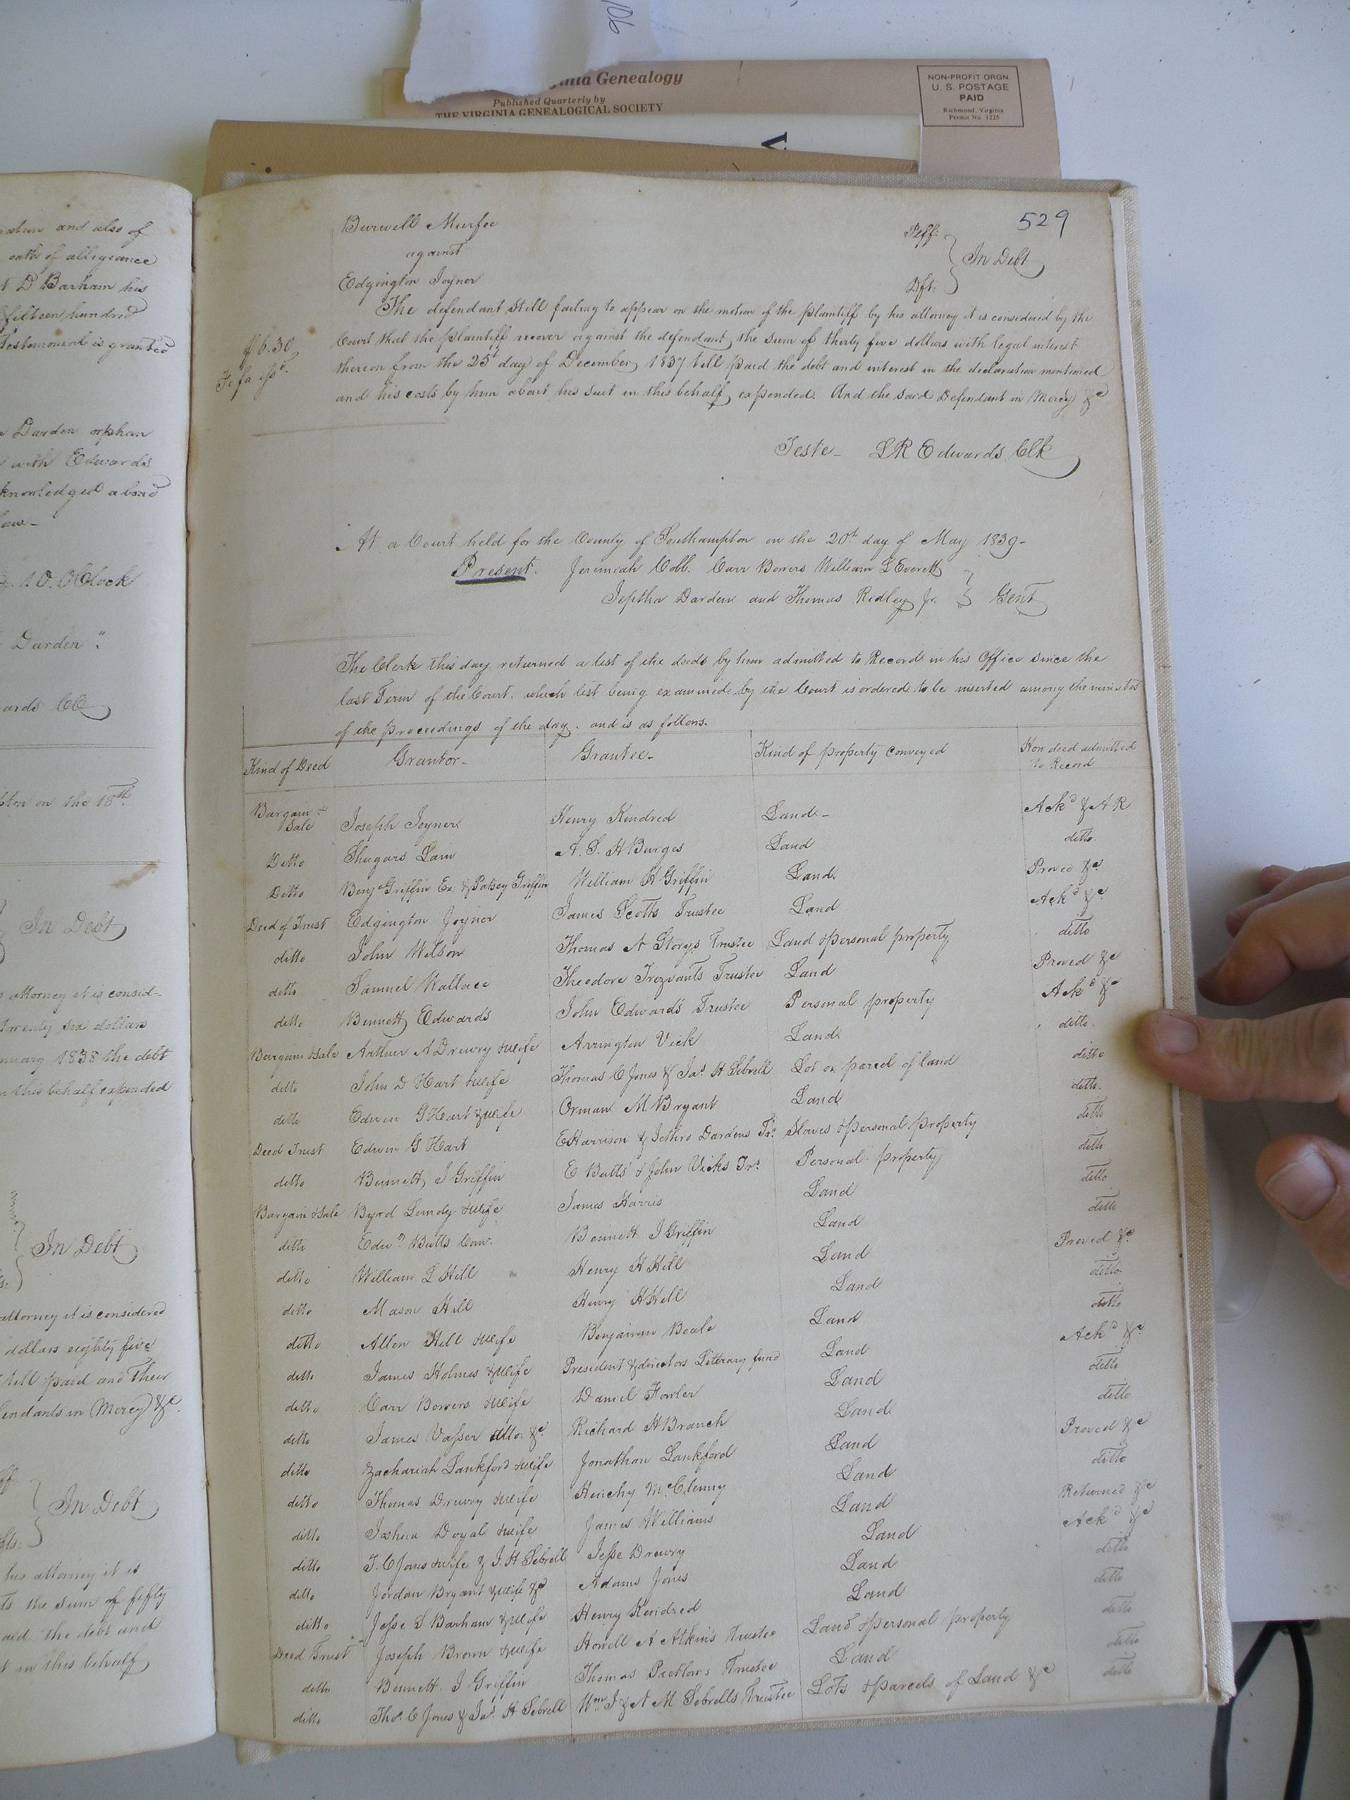 106
Virginia Genealogy
Published Quarterly by
THE VIRGINIA GENEALOGICAL SOCIETY
NON-PROFIT ORGN.
U. S. POSTAGE
PAID
Richmond, Virginia
Permit No. 1225
V
and also of
oath of allegiance
D Barham his
fifteen hundred
Testamonial is granted
Darden orphan
with Edwards
knowledged a bond
law_
10. OClock
Darden "
on the 18th
In Debt
attorney it is consid-
Twenty six dollars
1838 the debt
in this behalf expended
In Debt
attorney it is considered
dollars eighty five
till paid and their
endants in Mercy &c.
In Debt
his attorney it is
the sum of fifty
aid the debt and
in this behalf
529
Burwell Murfee Plff.
against } In Debt
Edgington Joyner Dft.
The defendant still failing to appear on the motion of the plaintiff by his attorney it is considered by the
Court that the plaintiff recover against the defendant the sum of thirty five dollars with legal interest
thereon from the 25t day of December 1837 till paid the debt and interest in the declaration mentioned
and his costs by him about his suit in this behalf expended. And the said Defendant in Mercy &c
$ 6.30
Teste_ LR Edwards Clk
At a Court held for the County of Southampton on the 20th day of May 1839_
Present. Jeremiah Cobb. Carr Bowers William L Everett
Jeptha Darden and Thomas Ridley Jr. } Gent
The Clerk this day returned a list of the deeds by him admitted to Record in his Office since the
last Term of the Court. which list being examined by the Court is ordered to be inserted among the minutes
of the proceedings of the day. and is as follows.
Kind of Deed Grantor_ Grantee_ Kind of property conveyed How deed admitted
to Record
Bargain &
Sale Joseph Joyner Henry Kindred Land_ Ackd & A R
Ditto Shugars Lain A. S. H Burges Land ditto
Ditto Benj Griffin Ex & Patsey Griffin William H Griffin Land Proved &c
Deed of Trust Edgington Joyner James Scotts Trustee Land Ackd &c
ditto John Wilson Thomas A Storys Trustee Land & personal property ditto
ditto Samuel Wallace Theodore Trezvants Trustee Land Proved &c
ditto Bennett Edwards John Edwards Trustee Personal property Ackd &c
Bargain & Sale Arthur A Drewry & wife Arrington Vick Land ditto
ditto John D Hart & wife Thomas C Jones & Jas H Sebrell Lot or parcel of land ditto
ditto Edwin G Hart & wife Orman M Bryant Land ditto
Deed Trust Edwin G Hart E Harrison & Jethro Dardens Trs Slaves & personal property ditto
ditto Bennett J Griffin E Butts & John Vicks Trs Personal property ditto
Bargain & Sale Byrd Lundy & wife James Harris Land ditto
ditto Edwd Butts Bennett J Griffin Land ditto
ditto William L Hill Henry H Hill Land Proved &c
ditto Mason Hill Henry H Hill Land ditto
ditto Allen Hill & wife Benjamin Beale Land ditto
ditto James Holmes & wife President & directors Literary fund Land Ackd &c
ditto Carr Bowers & wife Daniel Fowler Land ditto
ditto James Vasser atto &c Richard H Branch Land ditto
ditto Zachariah Lankford & wife Jonathan Lankford Land Proved &c
ditto Thomas Drewry & wife Henchy McClenny Land ditto
ditto Joshua Doyal & wife James Williams Land Returned &c
ditto T. C Jones & wife & J. H Sebrell Jesse Drewry Land Ackd &c
ditto Jordan Bryant & wife &c Adams Jones Land ditto
ditto Jesse S Barham & wife Henry Kindred Land ditto
Deed Trust Joseph Brown & wife Howell A Atkins Trustee Land & personal property ditto
ditto Bennett J Griffin Thomas Pretlows Trustee Land ditto
ditto Thos C Jones & Jas H Sebrell Wm J & N M Sebrells Trustee Lots & parcels of Land &c ditto